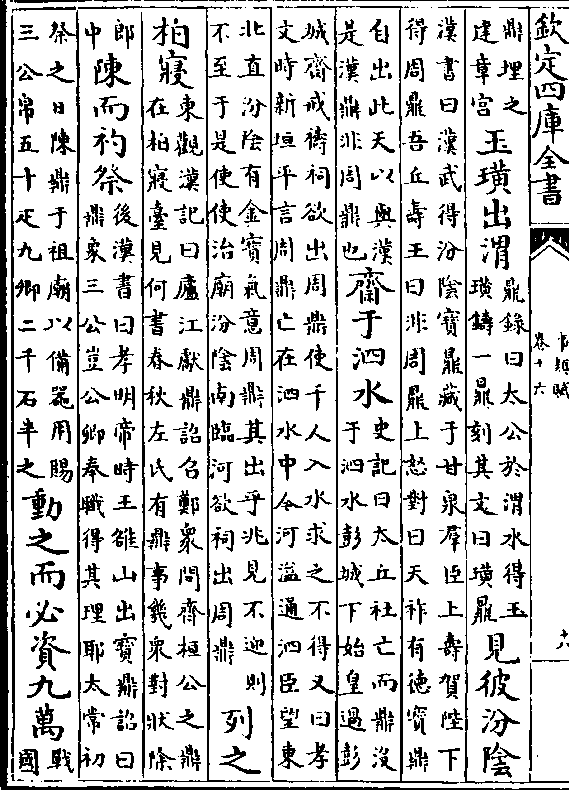 欽定四庫全書
卷十六
鼎埋之
建章宮
玉璜出渭
鼎錄曰太公於渭水得玉
璜鑄一鼎刻其文曰璜鼎
見彼汾陰
漢書曰漢武得汾陰寶鼎藏于甘泉羣臣上壽賀陛下
得周鼎吾丘壽王曰非周鼎上怒對曰天祚有德寶鼎
自出此天以與漢
是漢鼎非周鼎也
齋于泗水
史記曰太丘社亡而鼎沒
于泗水彭城下始皇過彭
城齋戒禱祠欲出周鼎使千人入水求之不得又曰孝
文時新垣平言周鼎亡在泗水中今河溢通泗臣望東
北直汾陰有金寶氣意周鼎其出乎兆見不迎則
不至于是使使治廟汾陰南臨河欲祠出周鼎
列之
柏寢
東觀漢記曰廬江獻鼎詔召鄭衆問齊桓公之鼎
在柏寢臺見何書春秋左氏有鼎事幾衆對狀除
郎
中
陳而礿祭
後漢書曰孝明帝時王雒山出寶鼎詔曰
鼎象三公豈公卿奉職得其理耶太常初
祭之日陳鼎于祖廟以備器用賜
三公帛五十疋九卿二千石半之
動之而必資九萬
戰
國